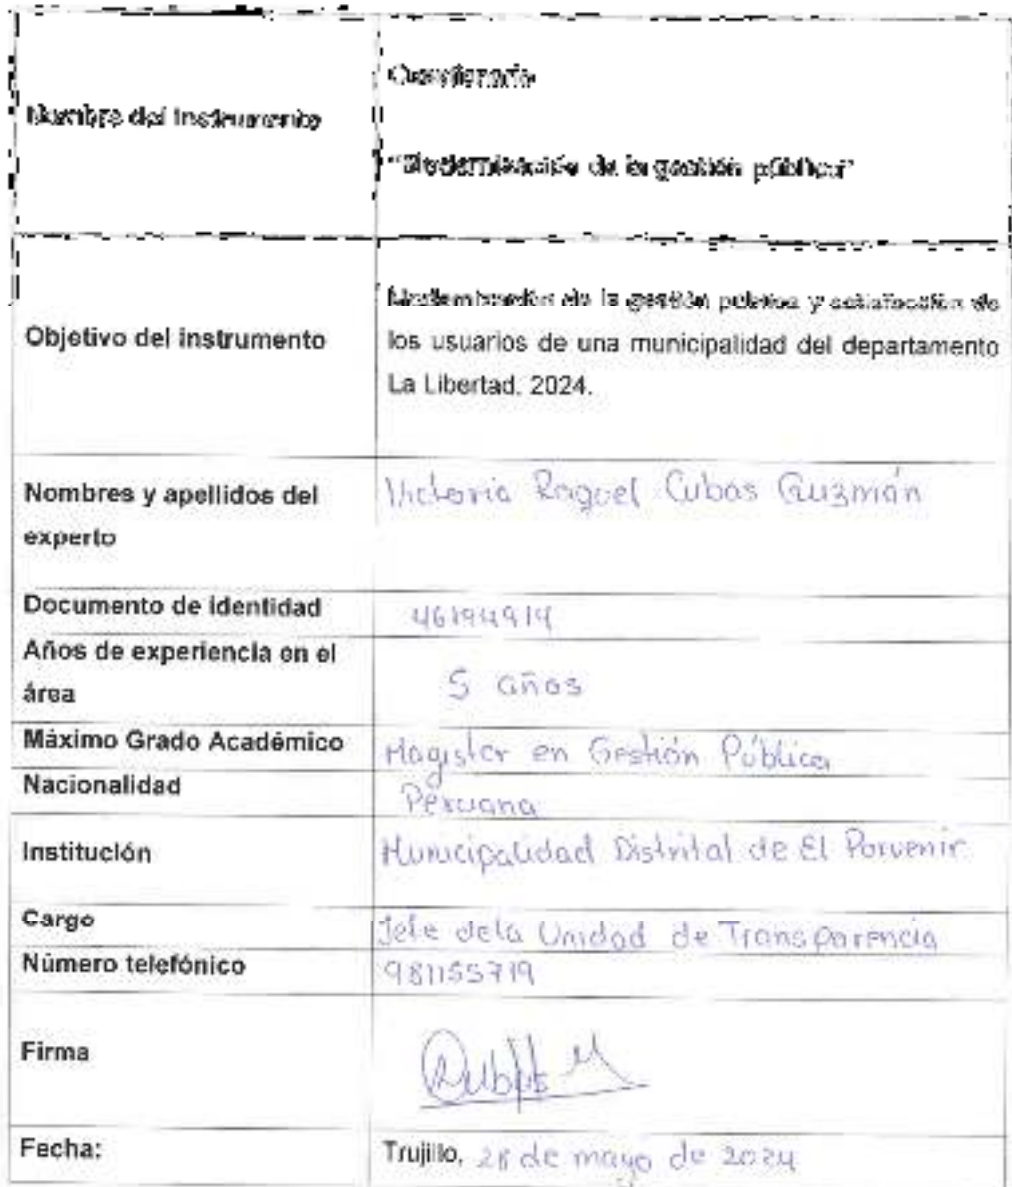 Nombre del Instrumento
Cuestionario
"Modernización de la gestión pública"
Objetivo del instrumento
Modernización de la gestión pública y satisfacción de
los usuarios de una municipalidad del departamento
La Libertad, 2024.
Nombres y apellidos del
experto
Victoria Raquel Cubas Guzmán
Documento de identidad
46194914
Años de experiencia en el
área
5 años
Máximo Grado Académico
Magister en Gestión Pública
Nacionalidad
Peruana
Institución
Municipalidad Distrital de El Porvenir
Cargo
Jefe dela Unidad de Transparencia
Número telefónico
981155719
Firma
Fecha:
Trujillo, 28 de mayo de 2024